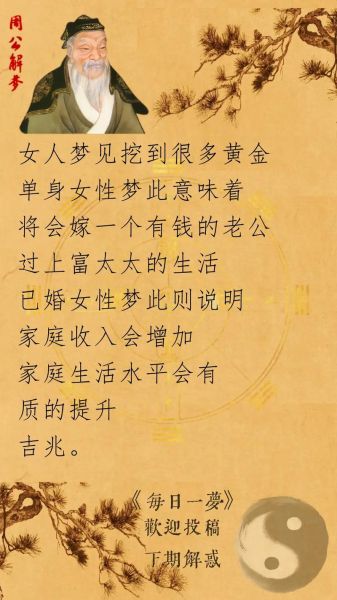 周公解梦
女人梦见挖到很多黄金
单身女性梦此意味着
将会嫁一个有钱的老公
过上富太太的生活
已婚女性梦此则说明
家庭收入会增加
家庭生活水平会有
质的提升
吉兆。
《每日一夢》
歡迎投稿
下期解惑